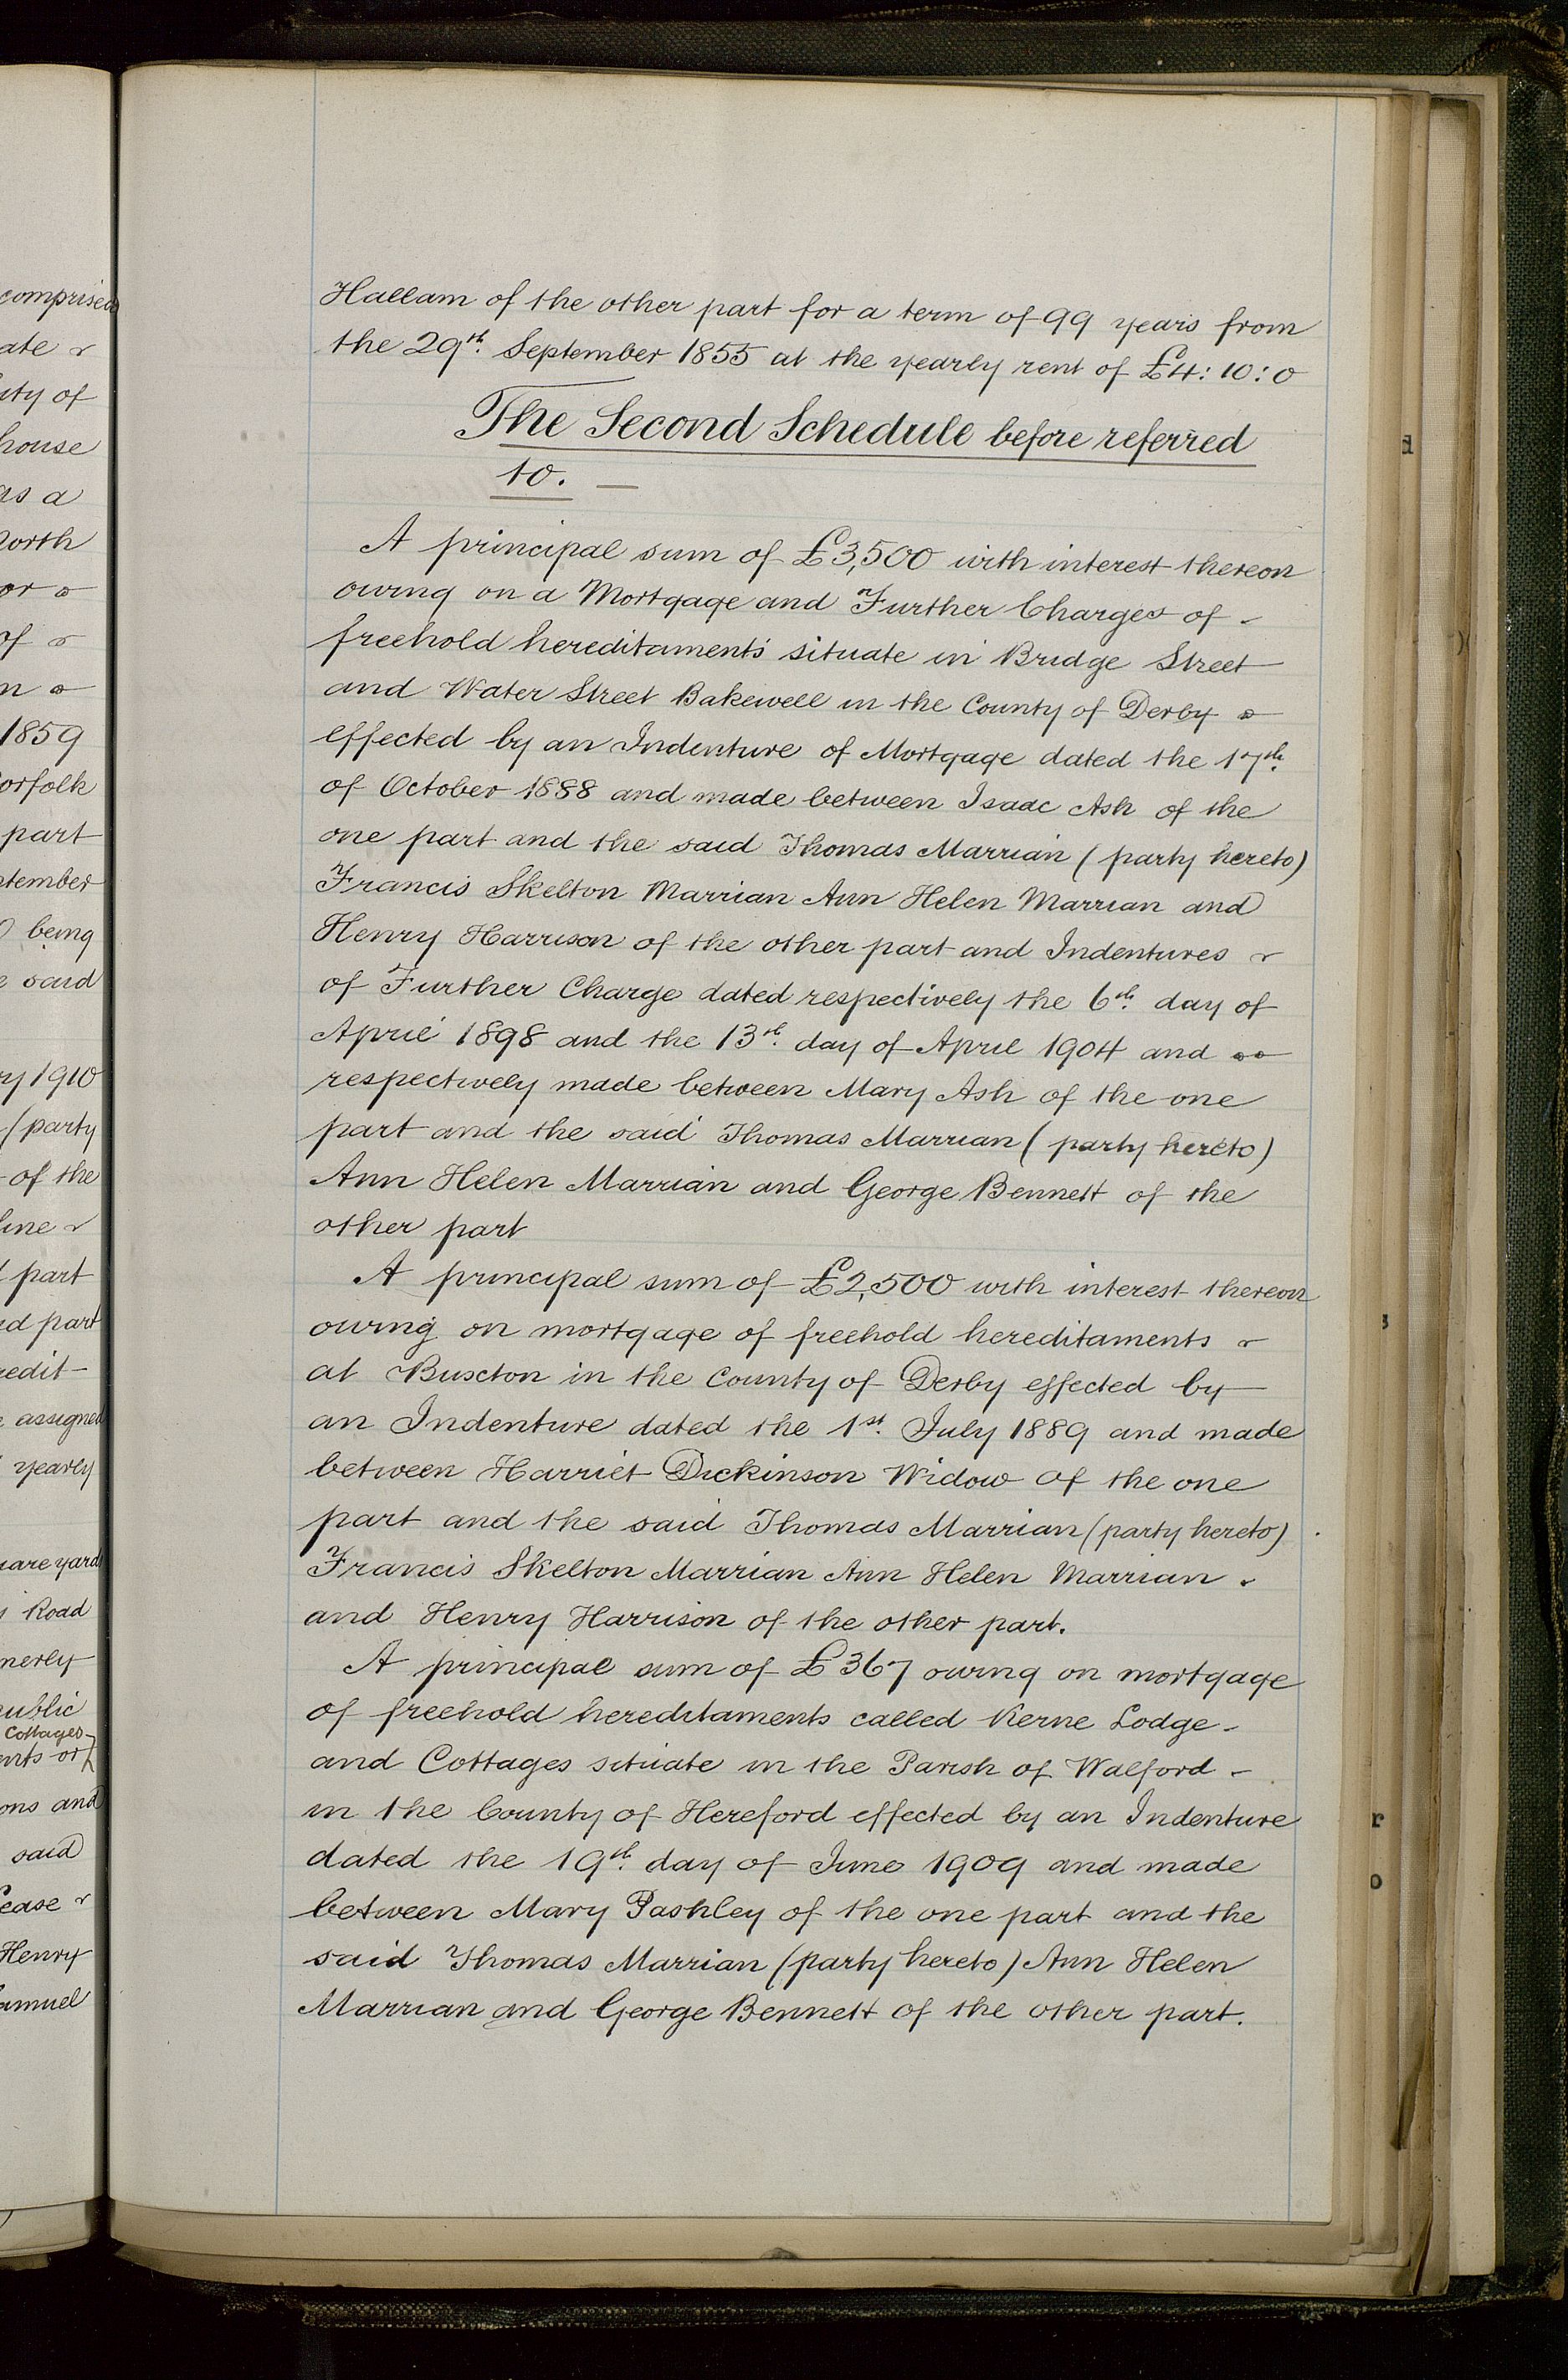 Hallam of the other part for a term of 99 years from
the 29th. September 1855 at the yearly rent of £4:10:0
The Second Schedule before referred
to. —
A principal sum of £3,500 with interest thereon
owing on a Mortgage and Further Charges of -
freehold hereditaments situate in Bridge Street
and Water Street Bakewell in the County of Derby
effected by an Indenture of Mortgage dated the 17th.
of October 1888 and made between Isaac Ash of the
one part and the said Thomas Marrian (party hereto)
Francis Skelton Marrian Ann Helen Marrian and
Henry Harrison of the other part and Indentures
of Further Charge dated respectively the 6th. day of
April 1898 and the 13th. day of April 1904 and
respectively made between Mary Ash of the one
part and the said Thomas Marrian (party hereto)
Ann Helen Marrian and George Bennett of the
other part
A principal sum of £2,500 with interest thereon
owing on mortgage of freehold hereditaments
at Buxton in the County of Derby effected by
an Indenture dated the 1st. July 1889 and made
between Harriet Dickinson Widow of the one
part and the said Thomas Marrian (party hereto)
Francis Skelton Marrian Ann Helen Marrian
and Henry Harrison of the other part.
A principal sum of £367 owing on mortgage
of freehold hereditaments called Kerne Lodge -
and Cottages situate in the Parish of Walford -
in the County of Hereford effected by an Indenture
dated the 19th. day of June 1909 and made
between Mary Pashley of the one part and the
said Thomas Marrian (party hereto) Ann Helen
Marrian and George Bennett of the other part.